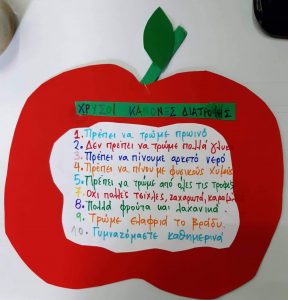 ΧΡΥΣΟΙ ΚΑΝΟΝΕΣ ΔΙΑΤΡΟΦΗΣ
1. Πρέπει να τρώμε πρωινό
2. Δεν πρέπει να τρώμε πολλά γλυκά
3. Πρέπει να πίνουμε αρκετό νερό
4. Πρέπει να πίνουμε φυσικούς χυμούς
5. Πρέπει να τρώμε από όλες τις τροφές
7. Όχι πολλές τσίχλες, ζαχαρωτά,
8. Πολλά φρούτα και λαχανικά.
9. Τρώμε ελαφριά το βράδυ.
10. Γυμναζόμαστε καθημερινά